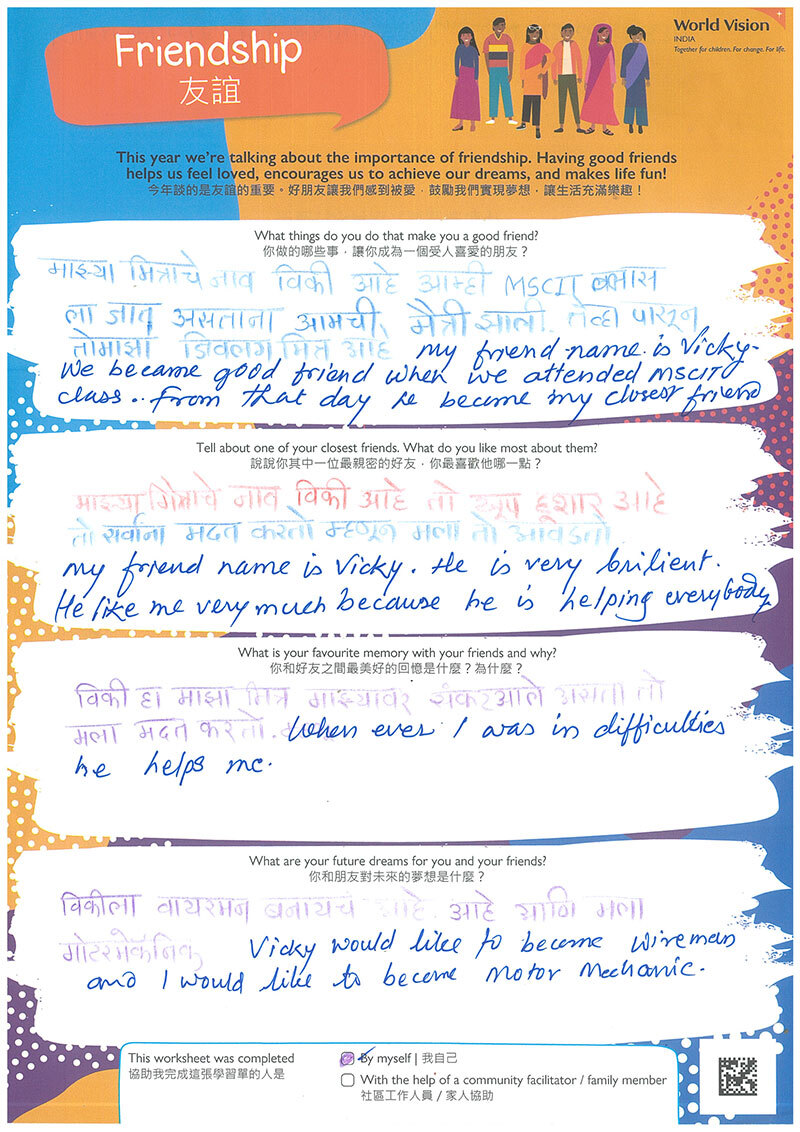 Friendship
友誼
World Vision
INDIA
Together for children. For change. For life.
This year we're talking about the importance of friendship. Having good friends
helps us feel loved, encourages us to achieve our dreams, and makes life fun!
今年談的是友誼的重要。好朋友讓我們感到被愛，鼓勵我們實現夢想，讓生活充滿樂趣！
What things do you do that make you a good friend?
你做的哪些事，讓你成為一個受人喜愛的朋友？
माझ्या मित्राचे नाव विकी आहे आम्ही MSCIT क्लास
ला जात असताना आमची मैत्री झाली. तेव्हा पासून
तोमाझा जिवलग मित्र आहे my friend name is Vicky.
We became good friend when we attended MSCIT
class.. From that day he become my closest friend
Tell about one of your closest friends. What do you like most about them?
說說你其中一位最親密的好友，你最喜歡他哪一點？
माझ्या मित्राचे नाव विकी आहे तो खूप हूशार आहे
तो सर्वांना मदत करतो म्हणून मला तो आवडतो.
my friend name is Vicky. He is very brilient.
He like me very much because he is helping everybody
What is your favourite memory with your friends and why?
你和好友之間最美好的回憶是什麼？為什麼？
विकी हा माझा मित्र माझ्यावर संकट आले असता तो
मला मदत करतो. When ever I was in difficulties
he helps me.
What are your future dreams for you and your friends?
你和朋友對未來的夢想是什麼？
विकीला वायरमन बनायचं आहे. आहे आणि मला
मोटरमेकॅनिक Vicky would like to become wireman
and I would like to become Motor Mechanic.
This worksheet was completed
協助我完成這張學習單的人是
By myself | 我自己
With the help of a community facilitator / family member
社區工作人員 / 家人協助